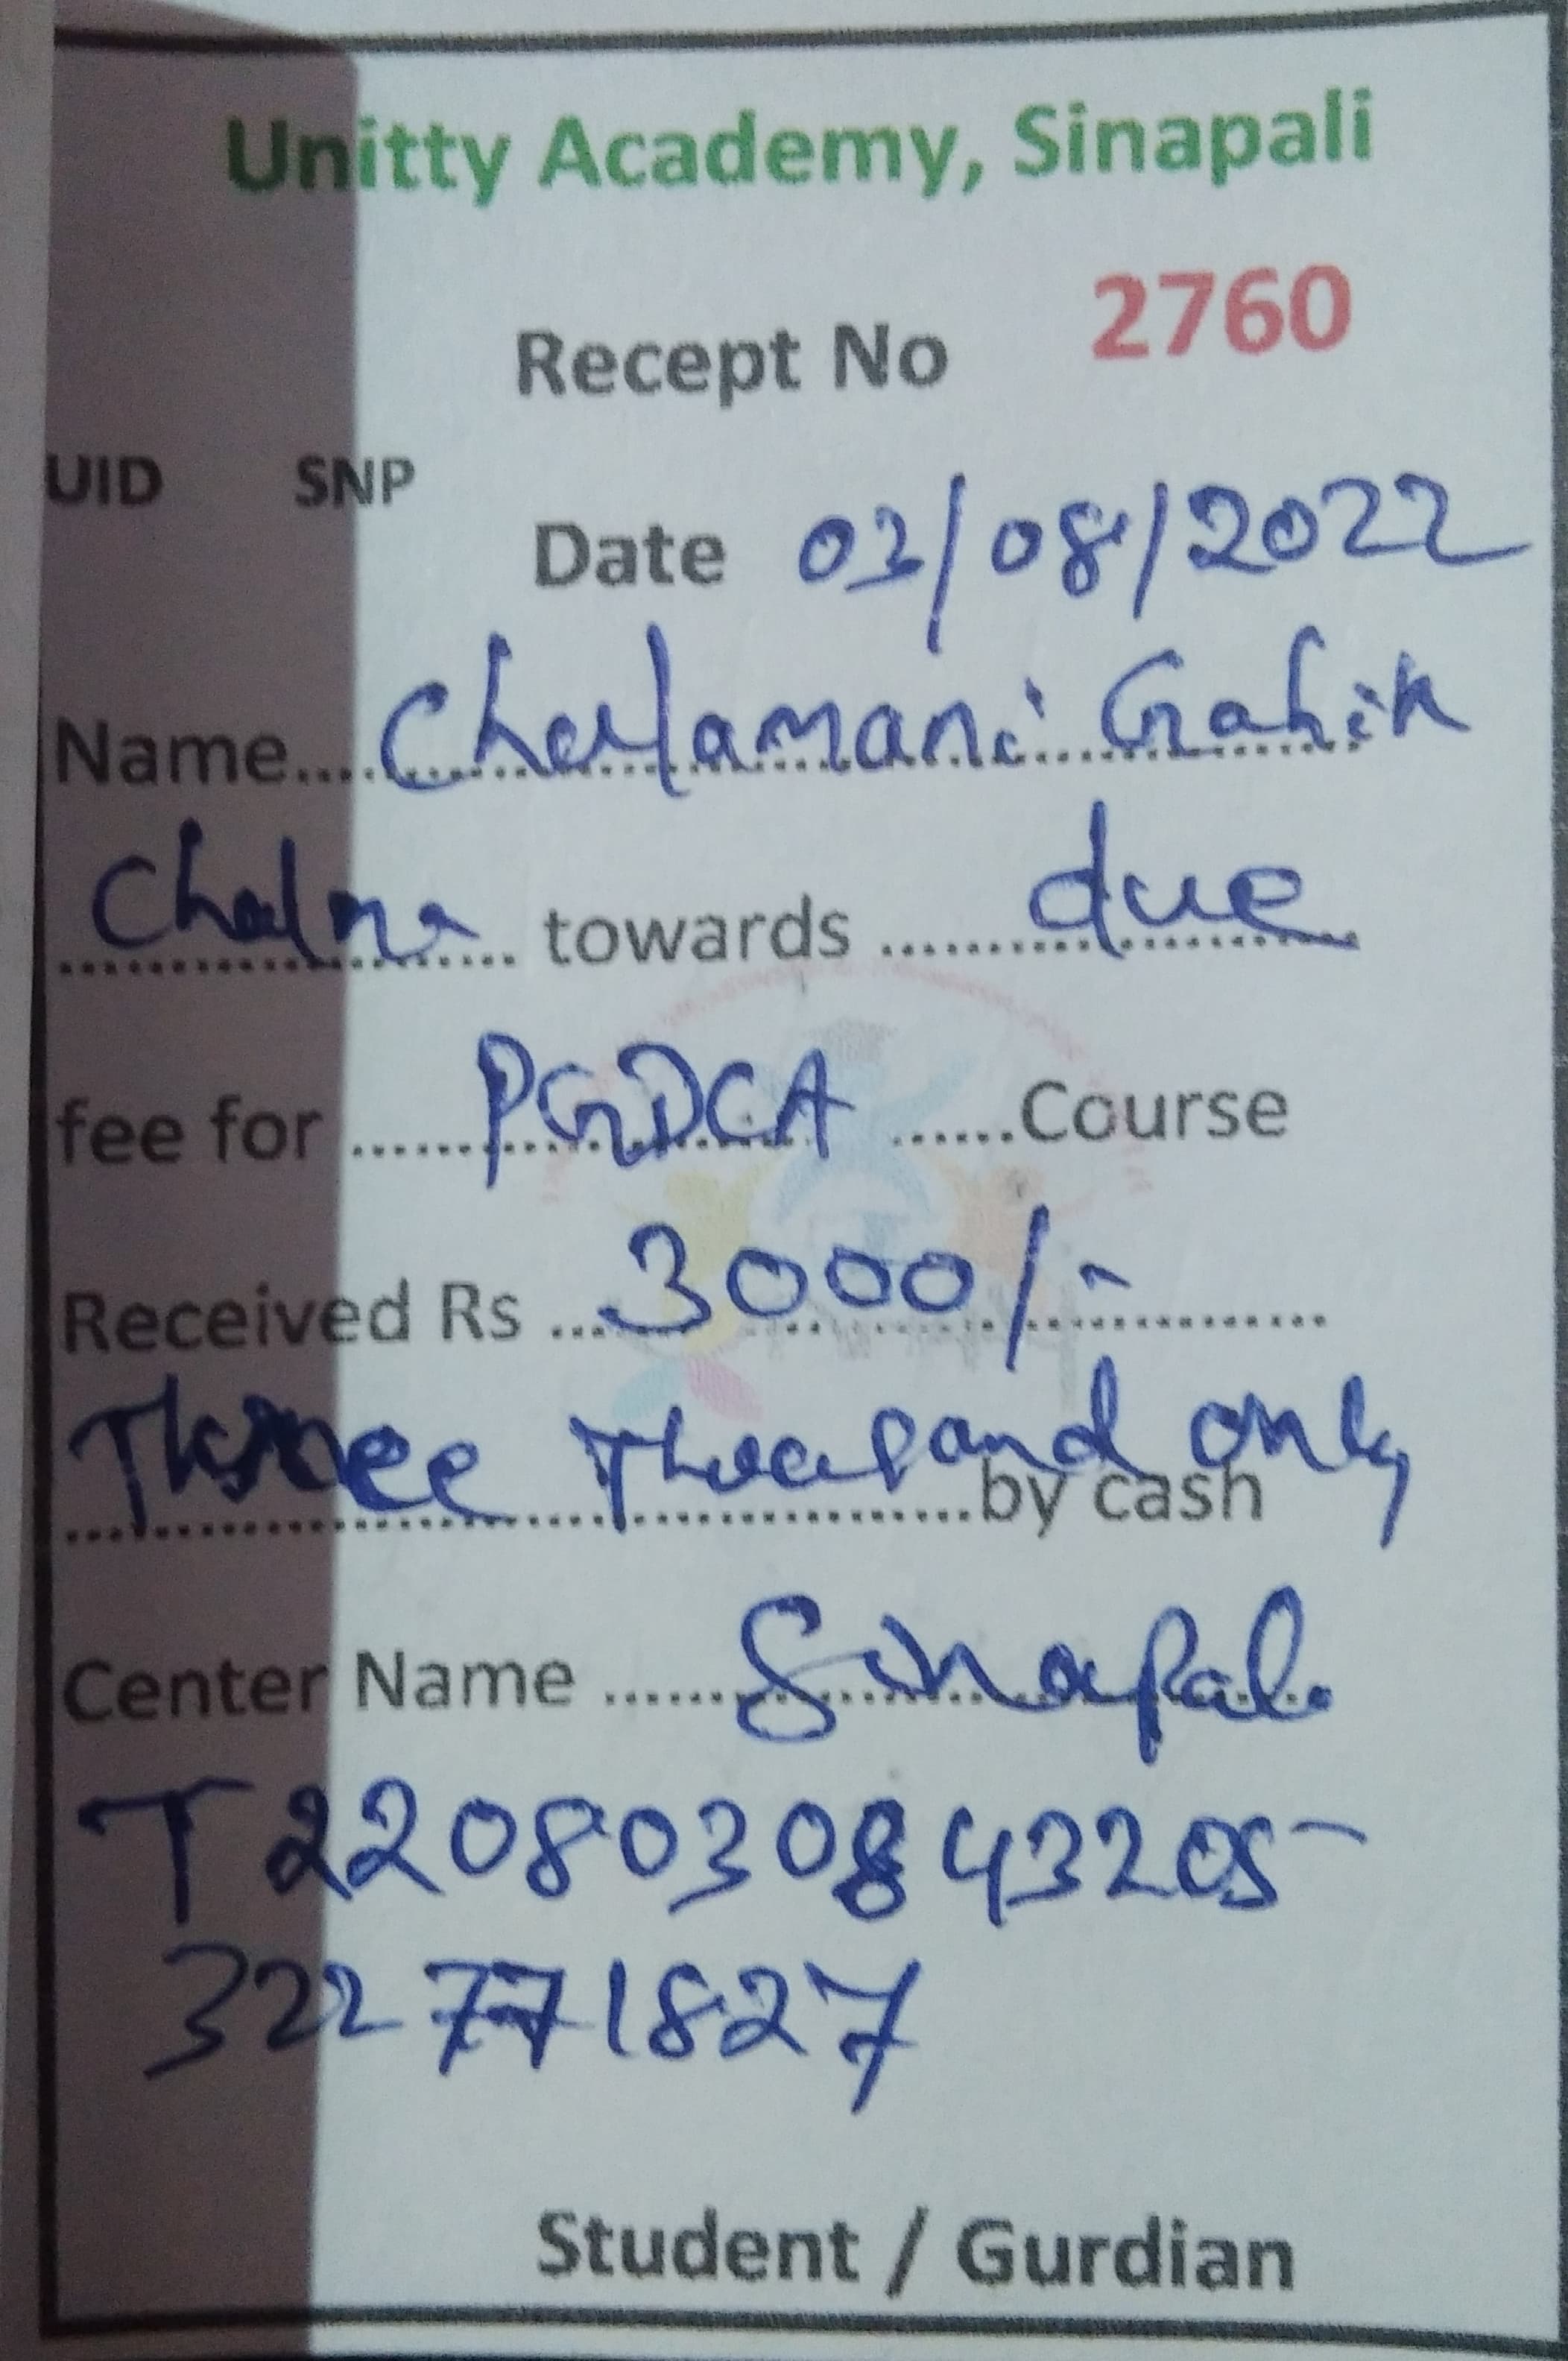 Unitty Academy, Sinapali
Recept No 2760
UID SNP
Date 03/08/2022
Name.... Gahir
towards ........ due
fee for ....... PGDCA ......Course
Received Rs ... 3000/-
Three Thousand only
by cash
Center Name ...... Sinapali
T2208030843205
322771827
Student / Gurdian